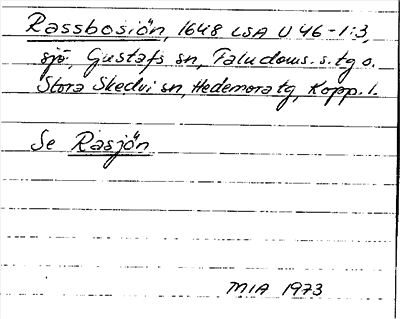 Rassbosiön, 1648 LSA U 46-1:3,
sjö, Gustafs sn, Faludoms. s. tg o.
Stora Skedvi sn, Hedemora tg, Kopp. l.
Se Rasjön
MIA 1973